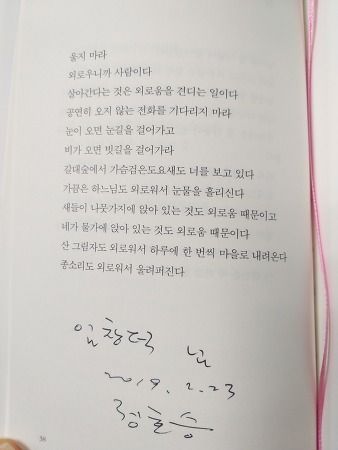 울지 마라
외로우니까 사람이다
살아간다는 것은 외로움을 견디는 일이다
공연히 오지 않는 전화를 기다리지 마라
눈이 오면 눈길을 걸어가고
비가 오면 빗길을 걸어가라
갈대숲에서 가슴검은도요새도 너를 보고 있다
가끔은 하느님도 외로워서 눈물을 흘리신다
새들이 나뭇가지에 앉아 있는 것도 외로움 때문이고
네가 물가에 앉아 있는 것도 외로움 때문이다
산 그림자도 외로워서 하루에 한 번씩 마을로 내려온다
종소리도 외로워서 울려퍼진다
임창덕 님
2019. 2. 23
38